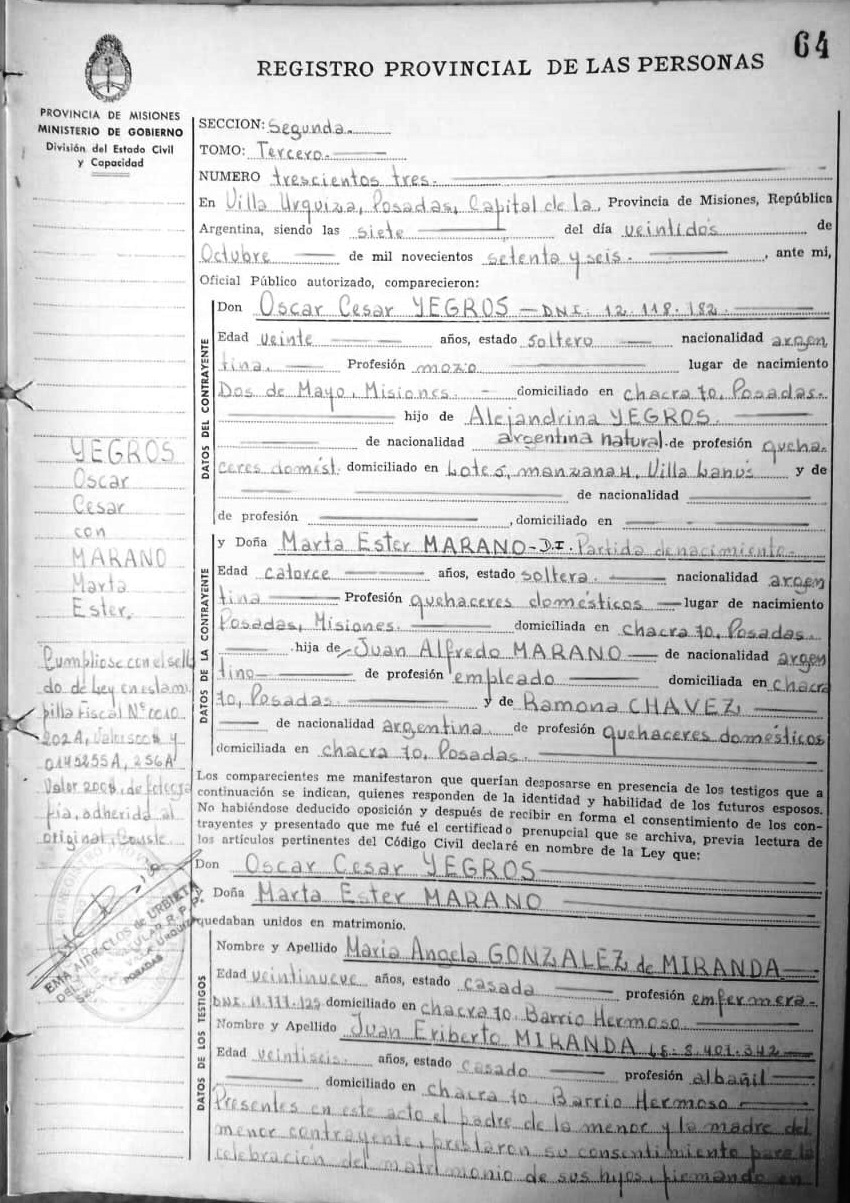 64
REGISTRO PROVINCIAL DE LAS PERSONAS
PROVINCIA DE MISIONES
MINISTERIO DE GOBIERNO
División del Estado Civil
y Capacidad
SECCION: Segunda.
TOMO: Tercero.
NUMERO trescientos tres.
En Villa Urquiza, Posadas, Capital de la, Provincia de Misiones, República
Argentina, siendo las siete del día veintidós de
Octubre de mil novecientos setenta y seis. , ante mi,
Oficial Público autorizado, comparecieron:
DATOS DEL CONTRAYENTE
Don Oscar Cesar YEGROS - DNI. 12.118.182.
Edad veinte años, estado soltero nacionalidad argen
tina. Profesión mozo lugar de nacimiento
Dos de Mayo, Misiones. - domiciliado en chacra 70, Posadas.
hijo de Alejandrina YEGROS.
de nacionalidad argentina natural. de profesión queha
ceres domést. domiciliado en Lote 5, manzana H, Villa Lanús y de
de nacionalidad
de profesión , domiciliado en
DATOS DE LA CONTRAYENTE
y Doña Marta Ester MARANO - D.I. Partida de nacimiento.
Edad catorce años, estado soltera. nacionalidad argen
tina Profesión quehaceres domésticos lugar de nacimiento
Posadas, Misiones. domiciliada en chacra 70, Posadas.
. hija de Juan Alfredo MARANO de nacionalidad argen
tino de profesión empleado domiciliada en chacra
70, Posadas. y de Ramona CHAVEZ,
de nacionalidad argentina. de profesión quehaceres domésticos
domiciliada en chacra 70, Posadas.
Los comparecientes me manifestaron que querían desposarse en presencia de los testigos que a
continuación se indican, quienes responden de la identidad y habilidad de los futuros esposos.
No habiéndose deducido oposición y después de recibir en forma el consentimiento de los con-
trayentes y presentado que me fué el certificado prenupcial que se archiva, previa lectura de
los artículos pertinentes del Código Civil declaré en nombre de la Ley que:
Don Oscar Cesar YEGROS
y Doña Marta Ester MARANO
quedaban unidos en matrimonio.
DATOS DE LOS TESTIGOS
Nombre y Apellido Maria Angela GONZALEZ de MIRANDA
Edad veintinueve años, estado casada profesión enfermera.
DNI. domiciliado en chacra 70. Barrio Hermoso
Nombre y Apellido Juan Eriberto MIRANDA LE. 8.401.342
Edad veintiseis. años, estado casado profesión albañil
domiciliado en chacra 70 Barrio Hermoso
Presentes en este acto el padre de la menor y la madre del
menor contrayente, prestaron su consentimiento para la
celebración del matrimonio de sus hijos, firmando en
YEGROS
Oscar
Cesar
con
MARANO
Marta
Ester.
Cumpliose con el sella
do de Ley en estam
pilla Fiscal Nº 0010
202A, Valor y
0145255A, 256A
Valor de fotogra
fía, adherida al
original, Conste.
EMA AIDE CLOS de URBIETA
POSADAS